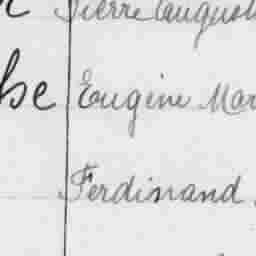 Pierre August
Eugène Mar
Ferdinand